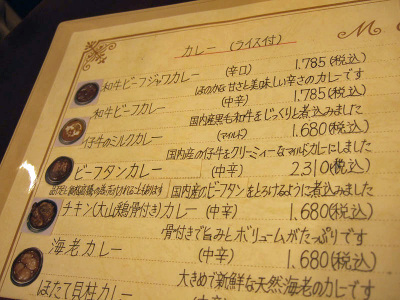 カレー (ライス付)
和牛ビーフジャワカレー (辛口) 1.785(税込)
ほのかな甘さと美味しい辛さのカレーです
和牛ビーフカレー (中辛) 1.785(税込)
国内産黒毛和牛をじっくりと煮込みました
仔牛のミルクカレー (マイルド) 1.680(税込)
国内産の仔牛をクリーミィーなマイルドカレーにしました
ビーフタンカレー (中辛) 2.310(税込)
国内産のビーフタンをとろけるように煮込みました
チキン(大山鶏骨付き)カレー (中辛) 1.680(税込)
骨付きで旨みとボリュームがたっぷりです
海老カレー (中辛) 1.680(税込)
大きめで新鮮な天然海老のカレーです
ほたて貝柱カレー (中辛) 1.680(税込)